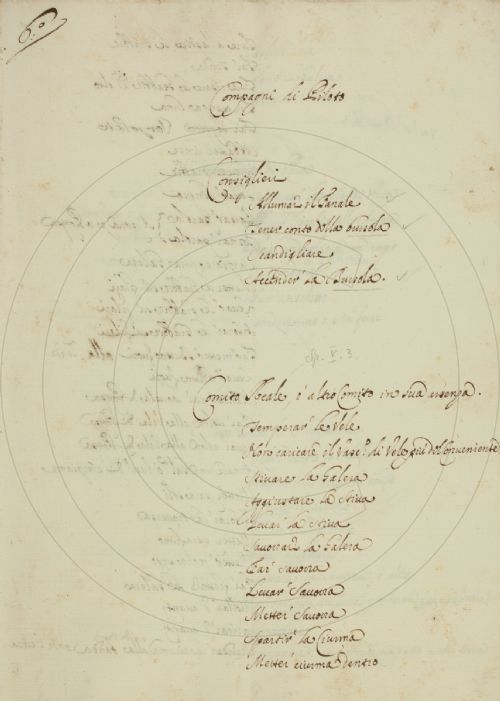 6.º
Compagni di Piloto
Consiglieri
Allumar il Fanale
Tener conto della bussola
Scandigliare
Accender la Bussola.
V. 3.
Comito Reale è altro Comito in sua assenza.
Temperar le Vele
Non caricare il Vasc.º di Vele più del Conveniente
Stivare la Galera
Aggiustare la Stiva
Levar la Stiva
Savorrar la Galera
Far Savorra
Levar Savorra
Metter Savorra
Spartir la Ciurma
Metter ciurma dentro